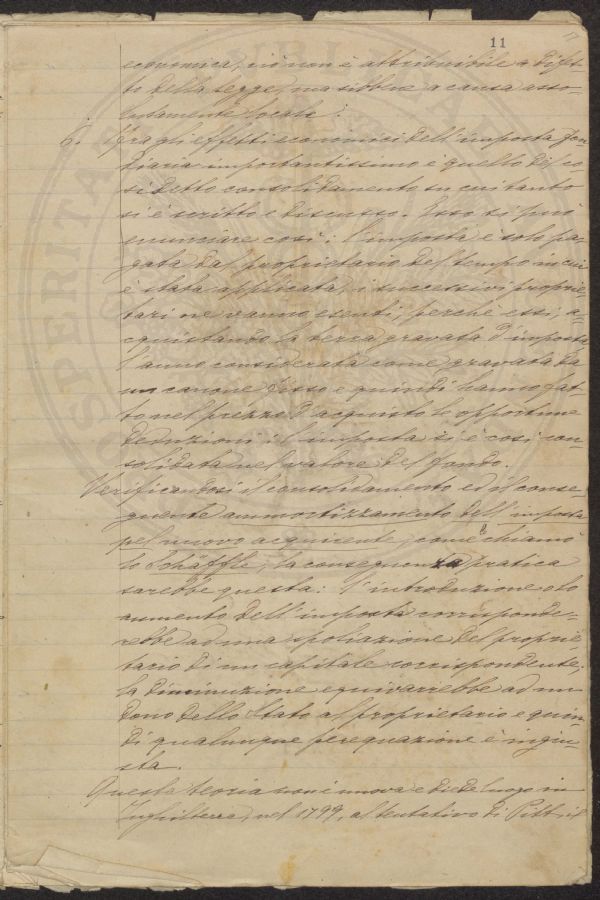 11
economica, ciò non è attribuibile a difet-
to della legge, ma sibbene a causa asso-
lutamente locale.
6. Fra gli effetti economici dell'imposta fon
diaria importantissimo è quello di co
sidetto consolidamento su cui tanto
si è scritto e discusso. Esso si può
enunciare così: l'imposta è solo pa-
gata dal proprietario del tempo in cui
è stata applicata, i successivi proprie-
tari ne vanno esenti, perchè essi, a-
cquistando la terra gravata d'imposta
l'anno considerata come gravata da
un canone fisso e quindi hanno fat-
to nel prezzo d'acquisto le opportune
deduzioni: l'imposta si è così con-
solidata nel valore del fondo.
Verificandosi il consolidamento ed il conse-
guente ammortizzamento dell'imposta
pel nuovo acquirente, come chiamò
lo Schäffle, la conseguenza pratica
sarebbe questa: l'introduzione o lo
aumento dell'imposta corrisponde-
rebbe ad una spoliazione del proprie-
tario di un capitale corrispondente;
la diminuzione equivarrebbe ad un
dono dallo Stato al proprietario e quin-
di qualunque perequazione è ingiu-
sta.
Questa teoria non è nuova e diede luogo in
Inghilterra, nel 1799, al tentativo di Pitt, il